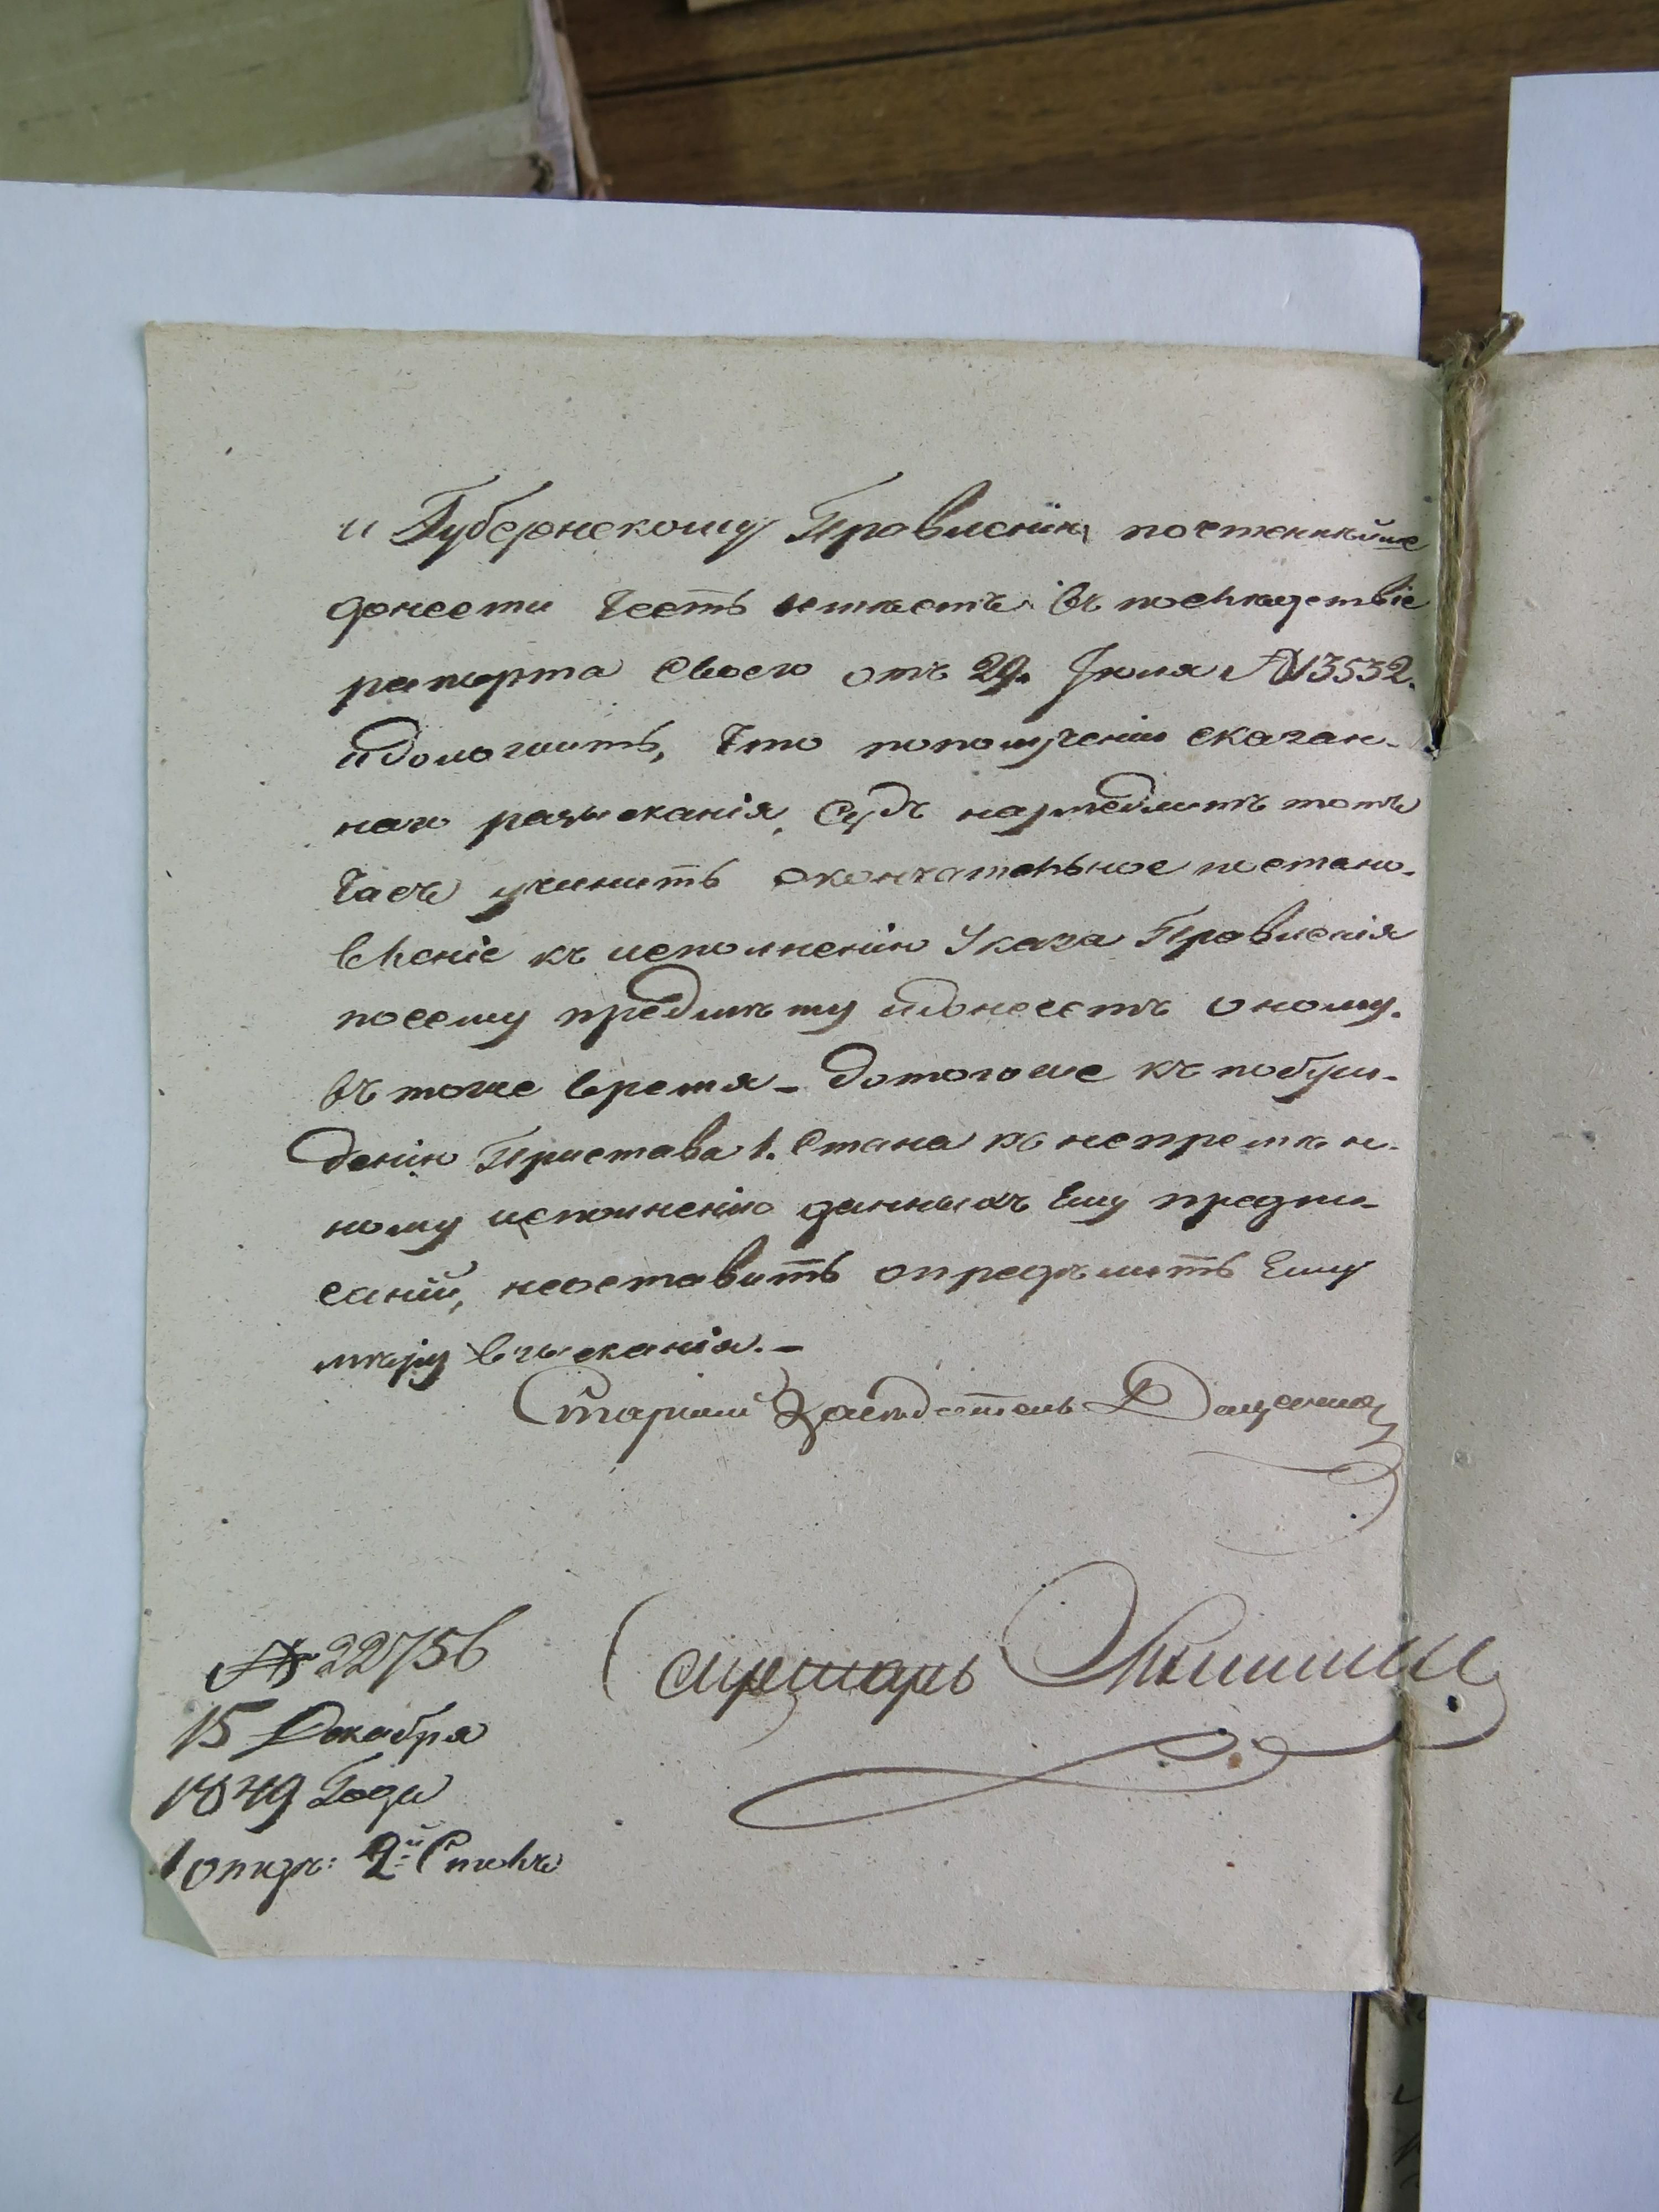 и Губернскому Правленію почтеннѣйше
донести честь имѣетъ въ послѣдствіе
рапорта своего отъ 29. Іюля №13532.
идоложить, что пополученіи сказан-
наго разысканія, Судъ незамедлитъ тотъ
часъ учинить окончательное постано-
вленіе къ исполненію Указа Правленія
посему предмѣту идонесетъ оному.
въ тоже время – дотогоже къ побуж-
денію Пристава 1. Стана къ непремѣн-
ному исполненію данныхъ Ему предпи-
саній, неоставить опредѣлить Ему
мѣру взысканія. –
Старшій Засѣдатель
Секретарь
№ 22756
15 Декабря
1849 Года
1 отдѣ: 2й Столъ